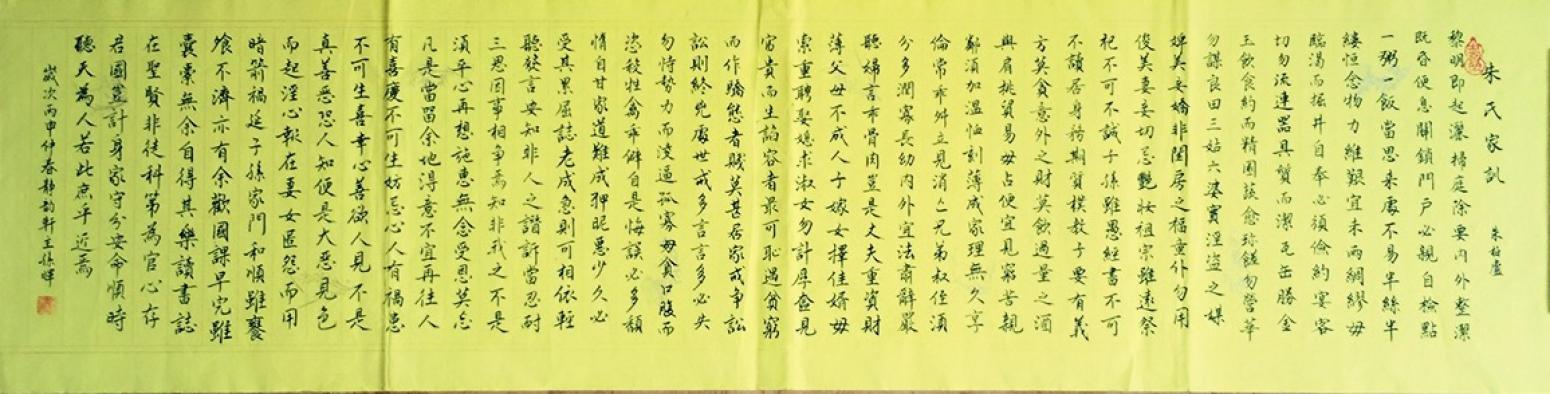 朱氏家訓
朱柏廬
黎明即起灑掃庭除要內外整潔
既昏便息關鎖門戶必親自檢點
一粥一飯當思來處不易半絲半
縷恒念物力維艱宜未雨綢繆毋
臨渴而掘井自奉必須儉約宴客
切勿流連器具質而潔瓦缶勝金
玉飲食約而精園蔬愈珍饈勿營華
勿謀良田三姑六婆實淫盜之媒
婢美妾嬌非閨房之福童仆勿用
俊美妻妾切忌艷妝祖宗雖遠祭
祀不可不誠子孫雖愚經書不可
不讀居身務期質樸教子要有義
方莫貪意外之財莫飲過量之酒
與肩挑貿易毋占便宜見窮苦親
鄰須加溫恤刻薄成家理無久享
倫常乖舛立見消亡兄弟叔侄須
分多潤寡長幼內外宜法肅辭嚴
聽婦言乖骨肉豈是丈夫重資財
薄父母不成人子嫁女擇佳婿毋
索重聘娶媳求淑女勿計厚奩見
富貴而生諂容者最可恥遇貧窮
而作驕態者賤莫甚居家戒爭訟
訟則終兇處世戒多言言多必失
勿恃勢力而淩逼孤寡毋貪口腹而
恣殺牲禽乖僻自是悔誤必多頹
惰自甘家道難成狎昵惡少久必
受其累屈誌老成急則可相依輕
聽發言安知非人之譖訴當忍耐
三思因事相爭焉知非我之不是
須平心再想施惠無念受恩莫忘
凡是當留余地得意不宜再往人
有喜慶不可生妒忌心人有禍患
不可生喜幸心善欲人見不是
真善惡恐人知便是大惡見色
而起淫心報在妻女匿怨而用
暗箭禍延子孫家門和順雖饔
飧不濟亦有余歡國課早完雖
囊橐無余自得其樂讀書誌
在聖賢非徒科第為官心存
君國豈計身家守分安命順時
聽天為人若此庶乎近焉
歲次丙申仲春靜韵軒主孫暉